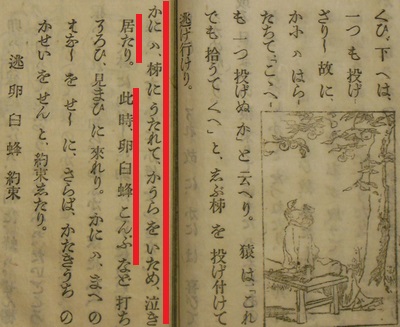 くひ、下へは、
一つも投げ
ざりし故に、
かにハはら
たちて「こゝへ
も一つ投げぬか」と云へり。猿は「これ
でも拾うてくへ」と、しぶ柹を投げ付けて
逃げ行けり。
かにハ、柹にうたれて、かうらをいため、泣き
居たり。此時、卵臼蜂こんぶなど打ち
そろひ、見まひに來れり。かにハ、まへの
はなしをせしに、さらば、かたきうちの
かせいをせんと、約束したり。
逃 卵 臼 蜂 約束